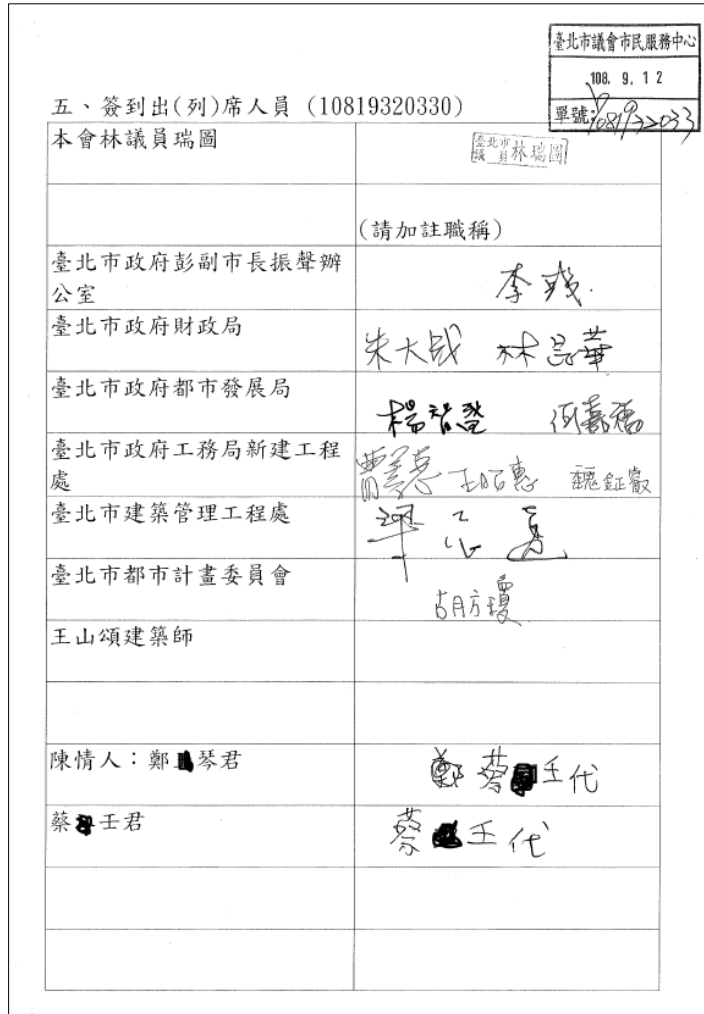 臺北市議會市民服務中心
108. 9. 12
單號:1081932033
五、簽到出(列)席人員 (10819320330)
本會林議員瑞圖
臺北市議員 林瑞圖
(請加註職稱)
臺北市政府彭副市長振聲辦
公室
李
臺北市政府財政局
朱大成 林昆華
臺北市政府都市發展局
楊智盛 何嘉
臺北市政府工務局新建工程
處
王昭惠 魏鉦叡
臺北市建築管理工程處
梁志
臺北市都市計畫委員會
胡方瓊
王山頌建築師
陳情人:鄭 琴君
鄭 蔡 壬代
蔡 壬君
蔡 壬代